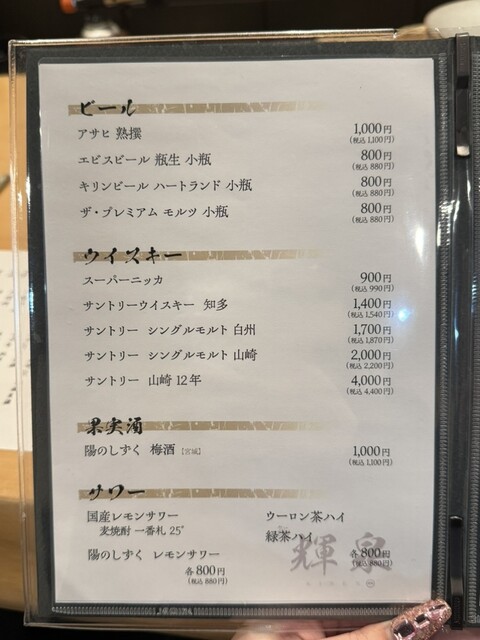 ビール
アサヒ 熟撰 1,000円
(税込 1,100円)
エビスビール 瓶生 小瓶 800円
(税込 880円)
キリンビール ハートランド 小瓶 800円
(税込 880円)
ザ・プレミアム モルツ 小瓶 800円
(税込 880円)
ウイスキー
スーパーニッカ 900円
(税込 990円)
サントリーウイスキー 知多 1,400円
(税込 1,540円)
サントリー シングルモルト 白州 1,700円
(税込 1,870円)
サントリー シングルモルト 山崎 2,000円
(税込 2,200円)
サントリー 山崎 12年 4,000円
(税込 4,400円)
果実酒
陽のしずく 梅酒 [宮城] 1,000円
(税込 1,100円)
サワー
国産レモンサワー
麦焼酎 一番札 25°
陽のしずく レモンサワー
各800円
(税込 880円)
ウーロン茶ハイ
緑茶ハイ
各800円
(税込 880円)
輝泉